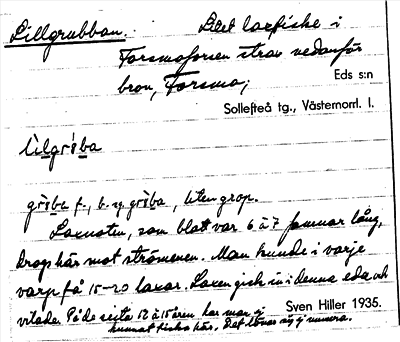 Lillgrubban. Litet laxfiske i
Forsmoforsen strax nedanför
bron, Forsmo,
Eds s:n
Sollefteå tg., Västernorrl. l.
lìlgrỏba
grỏba f., b. sg. grỏba, liten grop.
Laxnoten, som blott var 6 à 7 famnar lång,
drogs här mot strömmen. Man kunde i varje
varp få 15-20 laxar. Laxen gick in i denna eda och
vilade. På de sista 12 à 15 åren har man ej
Sven Hiller 1935.
kunnat fiska här. Det lönar sig ej numera.